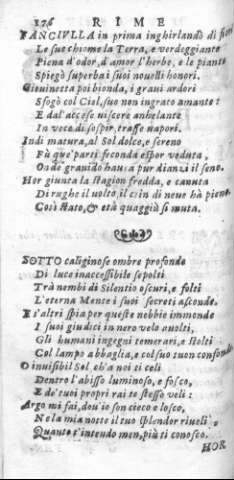 176 RIME
FANCIVLLA in prima inghirlandò di fiori
Le sue chiome la Terra, e verdeggiante
Piena d'odor, d'amor l'herbe, e le piante
Spiegò superba i suoi nouelli honori.
Giouinetta poi bionda, i graui ardori
Sfogò col Ciel, suo non ingrato amante:
E dal'accese viscere anhelante
In vece di sospir, trasse vapori.
Indi matura, al Sol dolce, e sereno
Fù que'parti feconda espor veduta,
Onde grauido hauea pur dianzi il seno.
Hor giunta la stagion fredda, e canuta
Di rughe il volto, il crin di neue hà pieno
Così stato, & età quaggiù si muta.
SOTTO caliginose ombre profonde
Di luce inaccessibile sepolti
Trà nembi di Silentio oscuri, e folti
L'eterna Mente i suoi secreti asconde.
E s'altri spia per queste nebbie immonde
I suoi giudici in nero velo auolti,
Gli humani ingegni temerari, e stolti
Col lampo abbaglia, e col suo tuon confonde
O inuisibil Sol, ch'a noi ti celi
Dentro l'abisso luminoso, e fosco,
E de'tuoi propri rai te stesso veli:
Argo mi fai, dou'io son cieco e losco,
Ne la mia notte il tuo splendor riueli,
Quanto t'intendo men, più ti conosco.
HOR